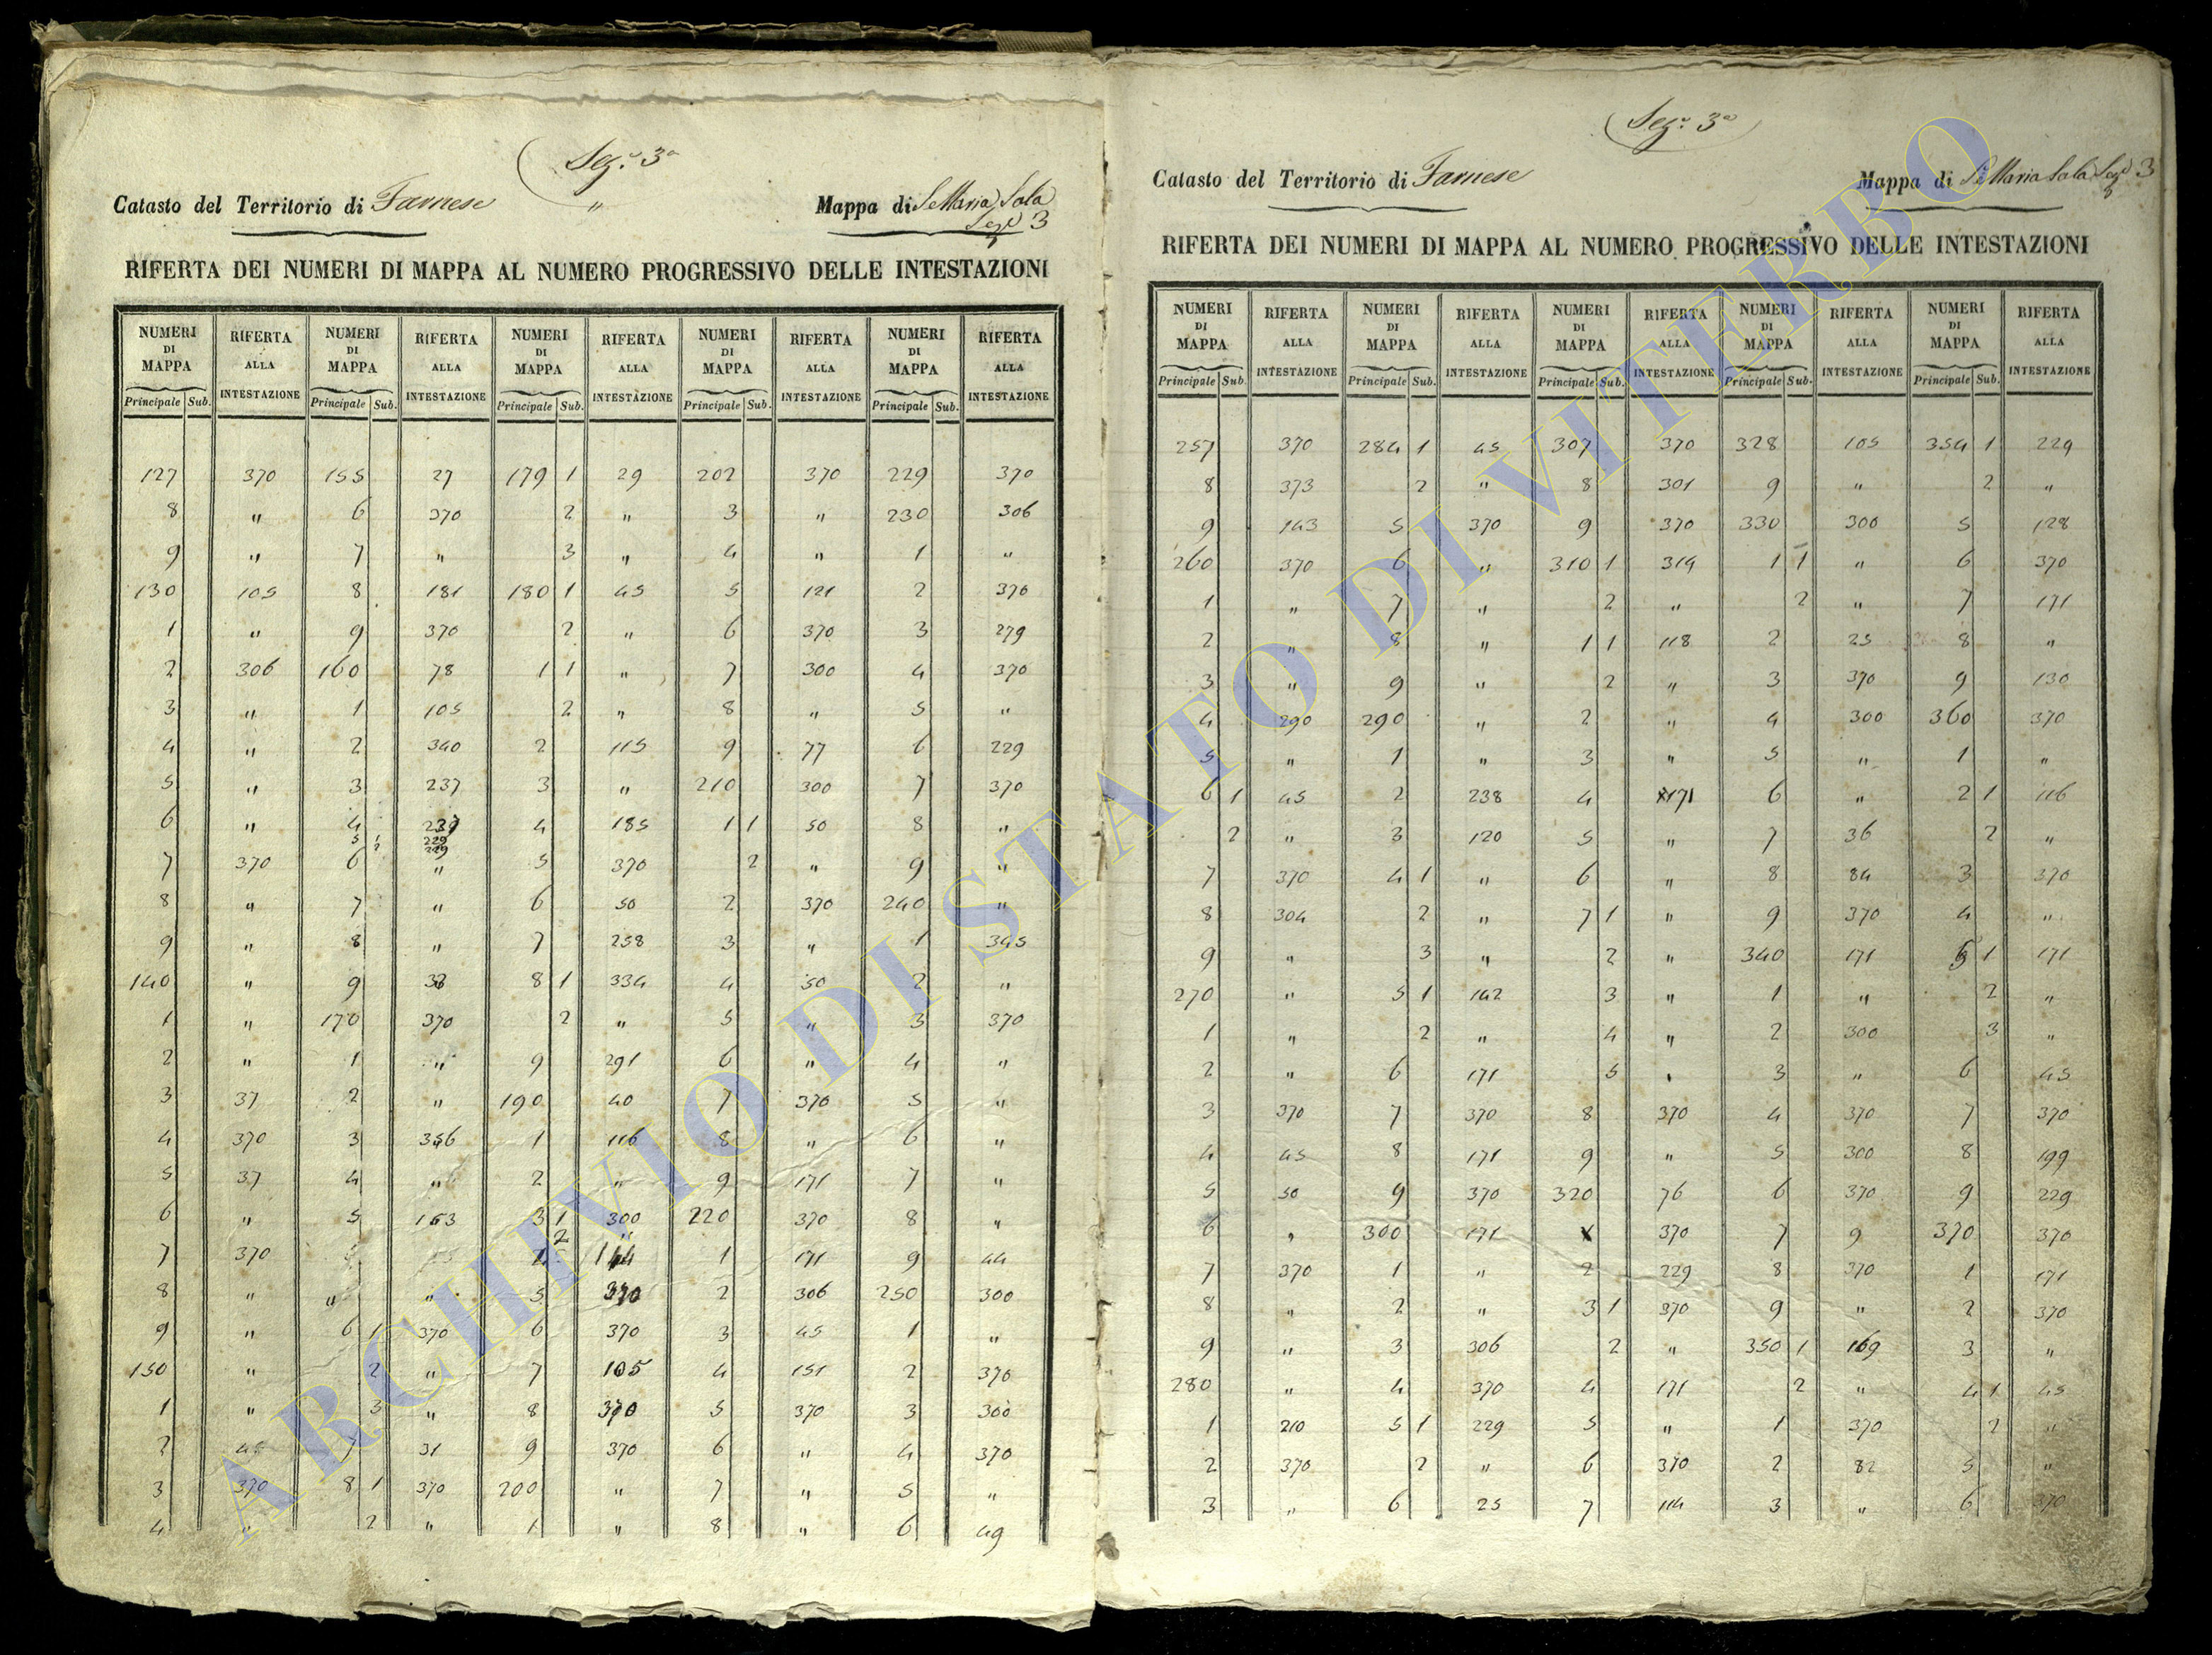 Sez.e 3a
Catasto del Territorio di Farnese
"
Mappa di S. Maria Sala
Seze 3
RIFERTA DEI NUMERI DI MAPPA AL NUMERO PROGRESSIVO DELLE INTESTAZIONI
NUMERI DI MAPPA RIFERTA ALLA INTESTAZIONE NUMERI DI MAPPA RIFERTA ALLA INTESTAZIONE NUMERI DI MAPPA RIFERTA ALLA INTESTAZIONE NUMERI DI MAPPA RIFERTA ALLA INTESTAZIONE NUMERI DI MAPPA RIFERTA ALLA INTESTAZIONE
Principale Sub. Principale Sub. Principale Sub. Principale Sub. Principale Sub.
127 370 155 27 179 1 29 202 370 229 370
8 " 6 370 2 " 3 " 230 306
9 " 7 " 3 " 4 " 1 "
130 105 8 181 180 1 45 5 121 2 370
1 " 9 370 2 " 6 370 3 279
2 306 160 78 1 1 " 7 300 4 370
3 " 1 105 2 " 8 " 5 "
4 " 2 340 2 115 9 77 6 229
5 " 3 237 3 " 210 300 7 370
6 " 4 239 4 185 1 1 50 8 "
5 1 229
2 229
7 370 6 " 5 370 2 " 9 "
8 " 7 " 6 50 2 370 240 "
9 " 8 " 7 258 3 " 1 345
140 " 9 38 8 1 334 4 50 2 "
1 " 170 370 2 " 5 " 3 370
2 " 1 " 9 291 6 " 4 "
3 37 2 " 190 40 7 370 5 "
4 370 3 356 1 116 8 " 6 "
5 37 4 " 2 " 9 171 7 "
6 " 5 153 3 1 300 220 370 8 "
2 "
7 370 144 1 171 9 44
8 " " " 5 370 2 306 250 300
9 " 6 1 370 6 370 3 45 1 "
150 " 2 " 7 105 4 151 2 370
1 " 3 " 8 370 5 370 3 300
2 45 7 31 9 370 6 " 4 370
3 370 8 1 370 200 " 7 " 5 "
4 " 2 " 1 " 8 " 6 49
Sez.e 3a
Catasto del Territorio di Farnese
Mappa di S. Maria Sala Seze 3
RIFERTA DEI NUMERI DI MAPPA AL NUMERO PROGRESSIVO DELLE INTESTAZIONI
NUMERI DI MAPPA RIFERTA ALLA INTESTAZIONE NUMERI DI MAPPA RIFERTA ALLA INTESTAZIONE NUMERI DI MAPPA RIFERTA ALLA INTESTAZIONE NUMERI DI MAPPA RIFERTA ALLA INTESTAZIONE NUMERI DI MAPPA RIFERTA ALLA INTESTAZIONE
Principale Sub. Principale Sub. Principale Sub. Principale Sub. Principale Sub.
257 370 284 1 45 307 370 328 105 354 1 229
8 373 2 " 8 301 9 " 2 "
9 143 5 370 9 370 330 300 5 128
260 370 6 " 310 1 314 1 1 " 6 370
1 " 7 " 2 " 2 " 7 171
2 " 8 " 1 1 118 2 25 8 "
3 " 9 " 2 " 3 370 9 130
4 290 290 " 2 " 4 300 360 370
5 " 1 " 3 " 5 " 1 "
6 1 45 2 238 4 171 6 " 2 1 116
2 " 3 120 5 " 7 36 2 "
7 370 4 1 " 6 " 8 84 3 370
8 304 2 " 7 1 " 9 370 4 "
9 " 3 " 2 " 340 171 5 1 171
270 " 5 1 142 3 " 1 " 2 "
1 " 2 " 4 " 2 300 3 "
2 " 6 171 5 " 3 " 6 45
3 370 7 370 8 370 4 370 7 370
4 45 8 171 9 " 5 300 8 199
5 50 9 370 320 76 6 370 9 229
6 " 300 171 1 370 7 9 370 370
7 370 1 " 2 229 8 370 1 171
8 " 2 " 3 1 370 9 " 2 370
9 " 3 306 2 " 350 1 169 3 "
280 " 4 370 4 171 2 " 4 1 45
1 210 5 1 229 5 " 1 370 2 "
2 370 2 " 6 370 2 82 5 "
3 " 6 25 7 114 3 " 6 370
ARCHIVIO DI STATO DI VITERBO